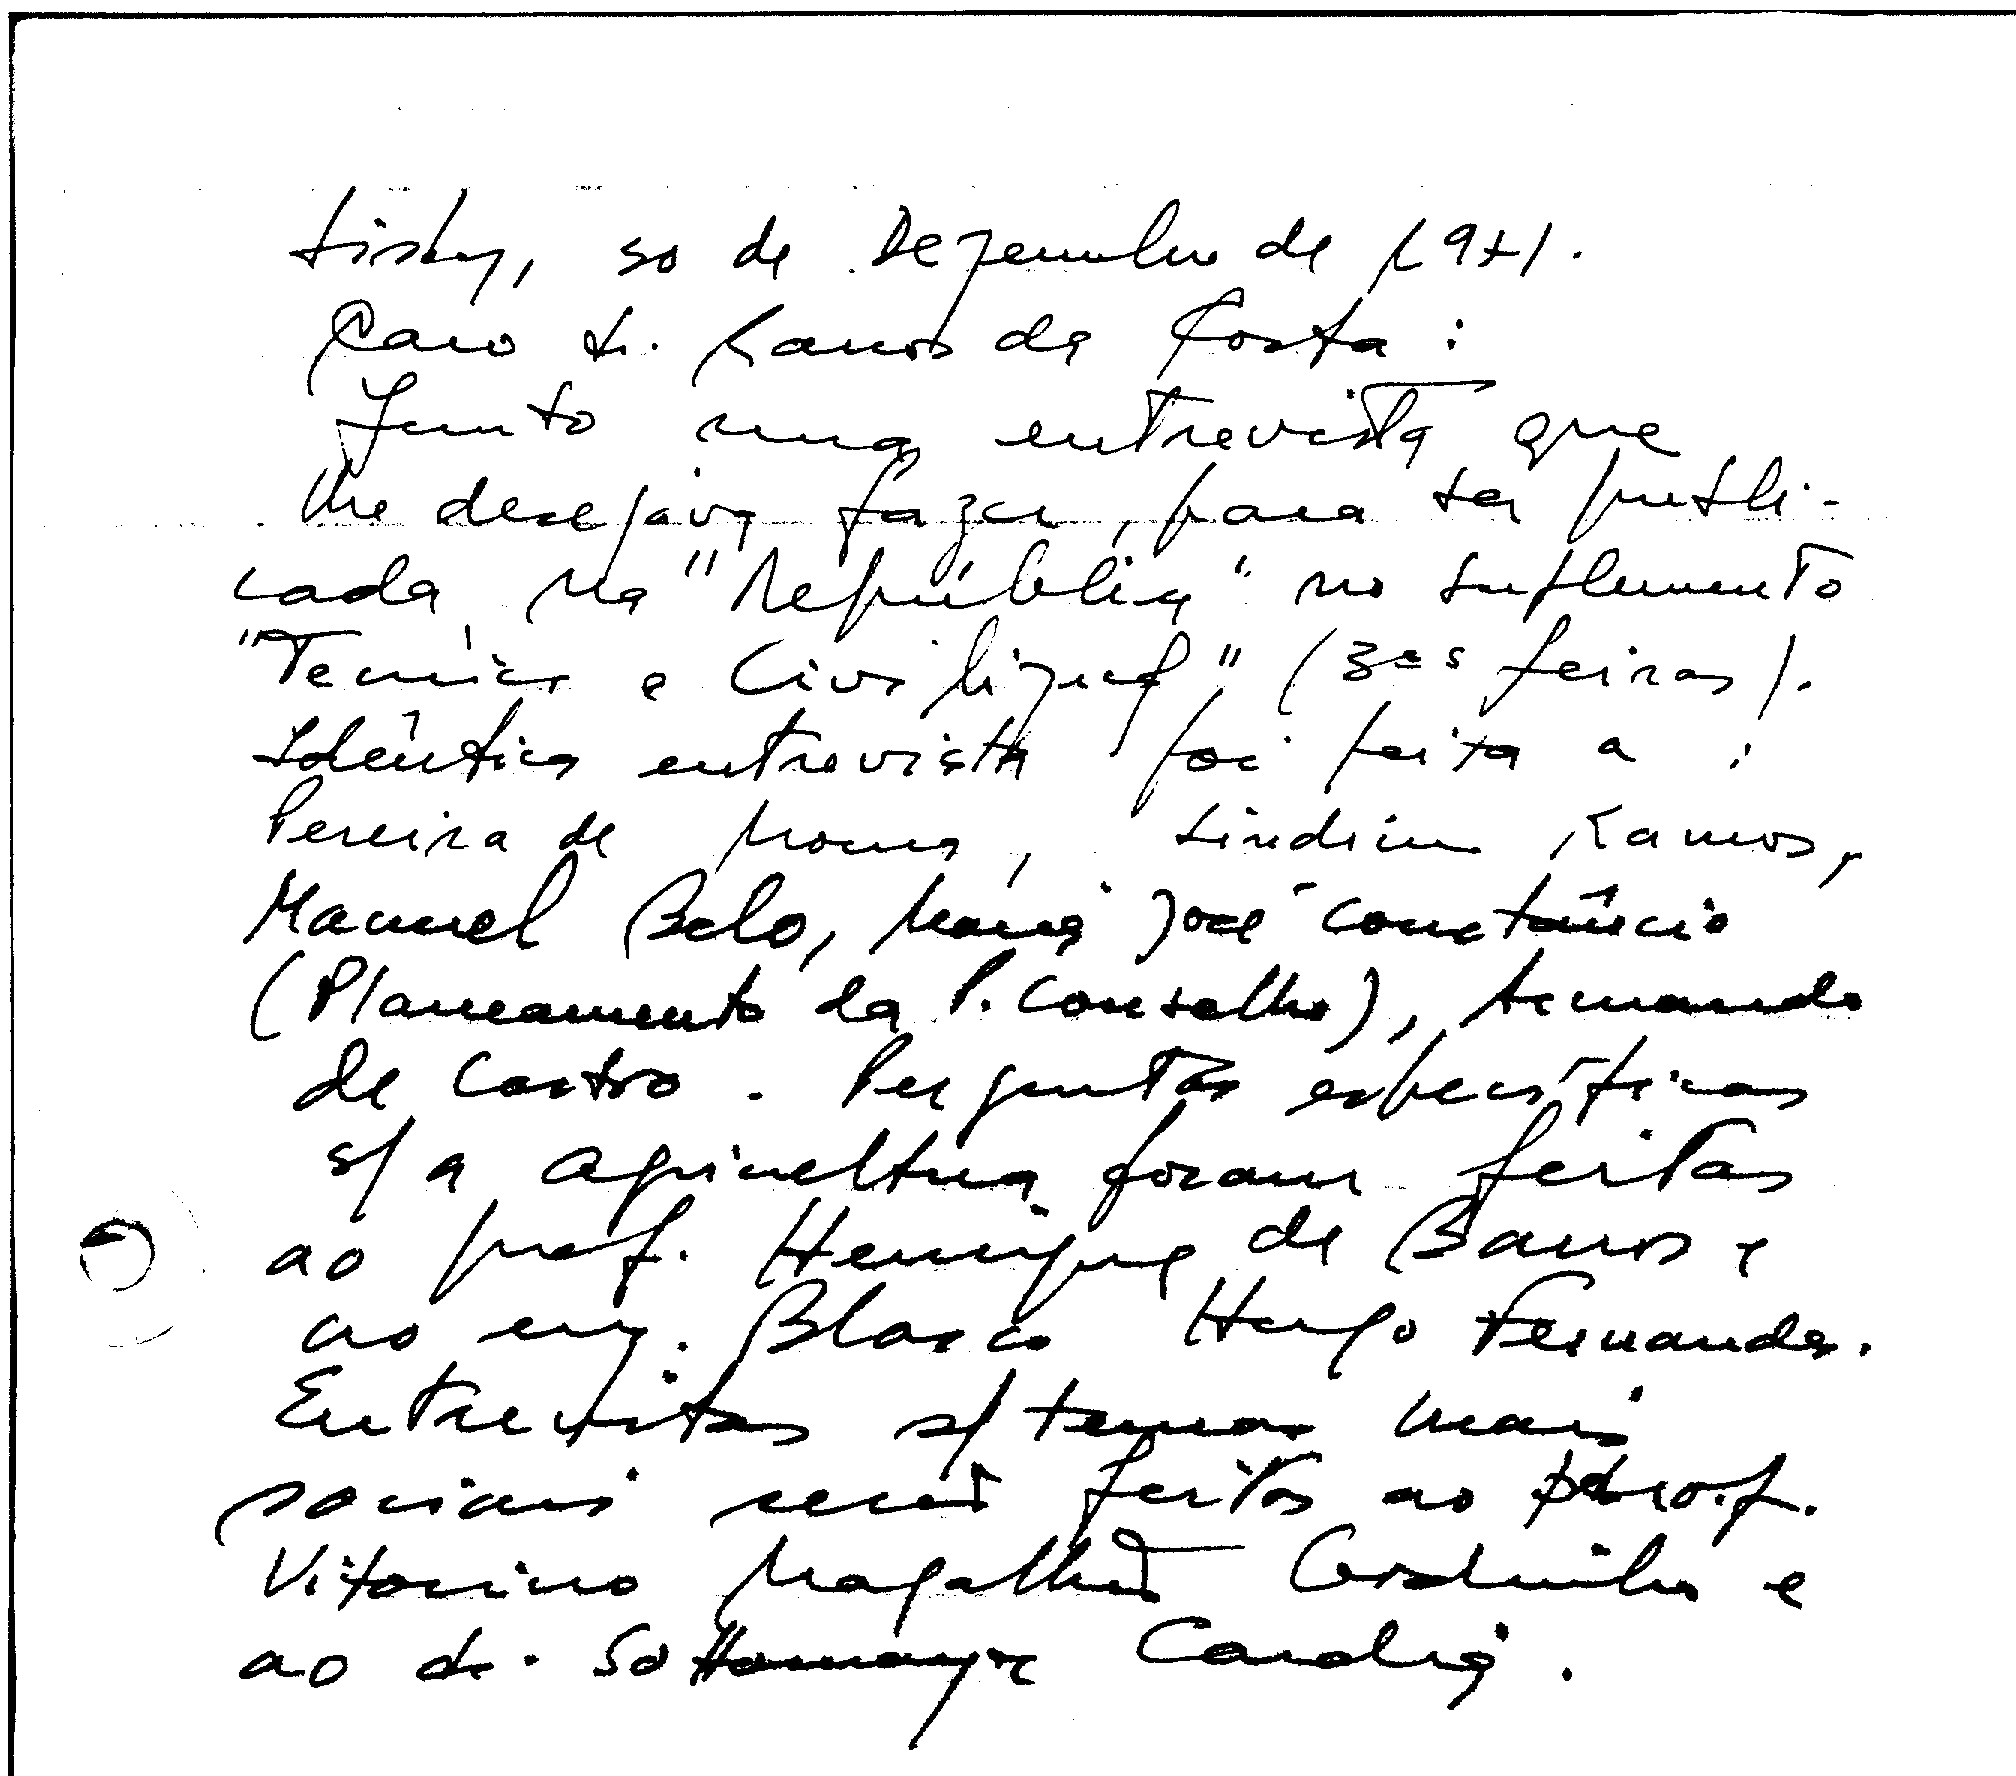 Lisboa, 30 de Dezembro de 1971.
Caro dr. Ramos da Costa:
Junto uma entrevista que
lhe desejava fazer, para ser publi-
cada na "República" no suplemento
"Técnica e Civilização" (3as feiras).
Idêntica entrevista foi feita a:
Pereira de Moura, Sindim Ramos,
Manuel Belo, Maria José Constâncio
(Planeamento da P. Conselho), Armando
de Castro. Perguntas específicas
s/ a agricultura foram feitas
ao prof. Henrique de Barros e
ao eng. Blasco Hugo Fernandes.
Entrevistas s/ temas mais
sociais serão feitas ao prof.
Vitorino Magalhães Godinho e
ao dr. Sottomayor Cardia.